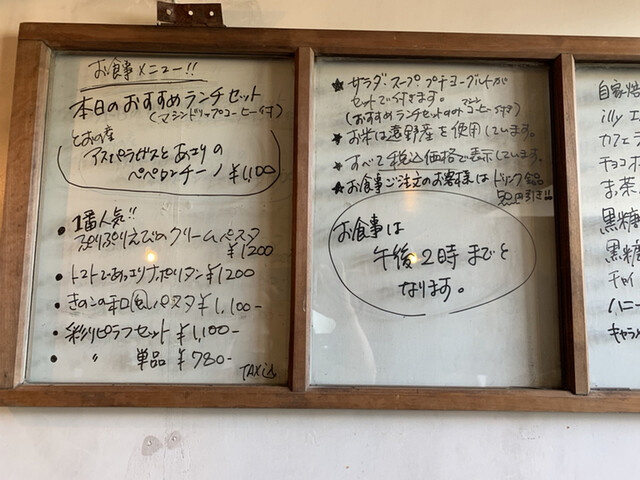 お食事メニュー!!
本日のおすすめランチセット
(マシンドリップコーヒー付)
とおの産
アスパラガスとあさりの
ペペロンチーノ ¥1,100
• 1番人気!!
ぷりぷりえびのクリームパスタ
¥1200
• トマトであっさりナポリタン ¥1200
• きのこの和風パスタ ¥1,100-
• 彩りピラフセット ¥1,100-
• 〃 単品 ¥780-
TAX込
★ サラダ・スープ・プチヨーグルトが
セットで付きます。
(おすすめランチセットのみマシンコーヒー付き)
★ お米は遠野産を使用しています。
★ すべて税込価格で表示しています。
★ お食事ご注文のお客様は ドリンク全品
円引き!!
お食事は
午後2時までと
なります。
自家焙
illy エ
カフェラ
チョコ
お茶
黒糖
黒糖
チャイ
ハニー
キャラ